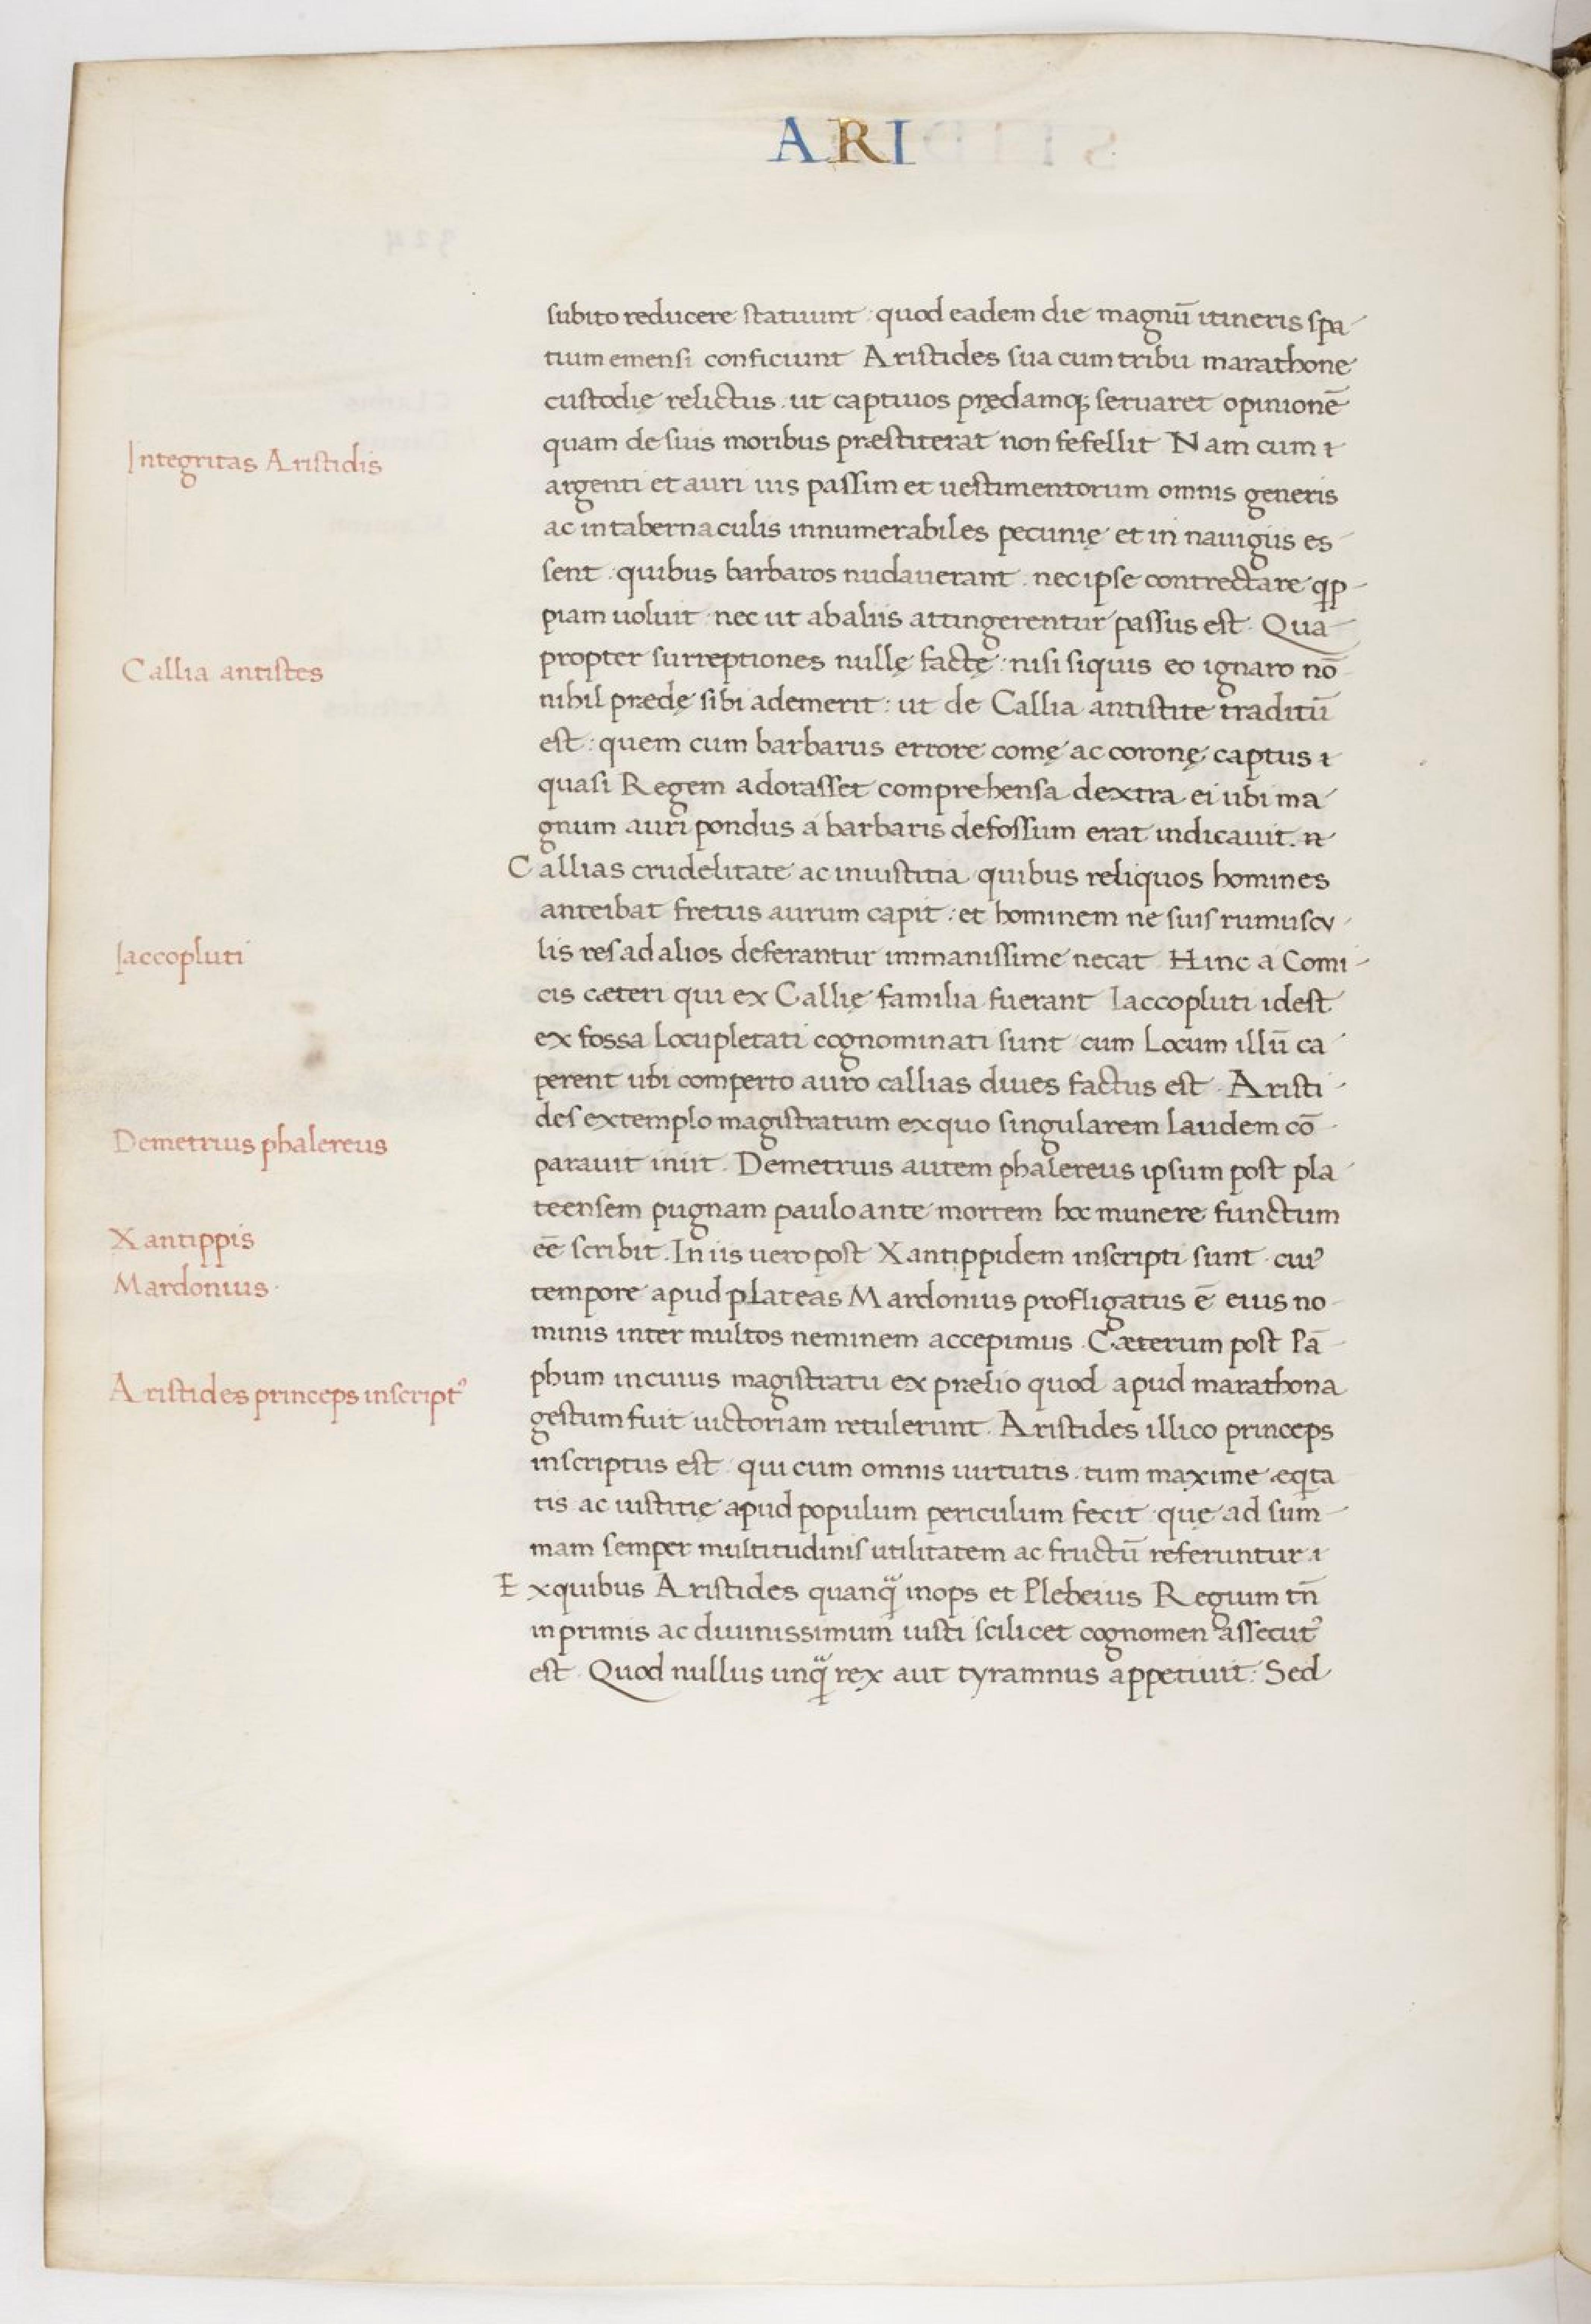 ARI
subito reducere statuunt : quod eadem die magnū itineris spa-
tium emensi conficiunt Aristides sua cum tribu marathone
custodię relictus . ut captiuos prędamq; seruaret opinionē
Integritas Aristidis
quam de suis moribus præstiterat non fefellit Nam cum &
argenti et auri uis passim et uestimentorum omnis generis
ac in tabernaculis innumerabiles pecunię et in nauigiis es-
sent : quibus barbaros nudauerant . nec ipse contrectare qp-
piam uoluit . nec ut ab aliis attingerentur passus est . Qua-
Callia antistes
propter surreptiones nullę factę : nisi siquis eo ignaro nō-
nihil prædę sibi ademerit : ut de Callia antistite traditū
est : quem cum barbarus errore comę ac coronę captus &
quasi Regem adorasset comprehensa dextra ei ubi ma-
gnum auri pondus a barbaris defossum erat indicauit .
Callias crudelitate ac iniustitia quibus reliquos homines
anteibat fretus aurum capit : et hominem ne suis rumuscu-
Iaccopluti
lis res ad alios deferantur immanissime necat Hinc a Comi-
cis cæteri qui ex Callię familia fuerant Iaccopluti idest
ex fossa Locupletati cognominati sunt cum Locum illū ca-
perent ubi comperto auro callias diues factus est . Aristi-
des extemplo magistratum ex quo singularem laudem cō-
Demetrius phalereus
parauit iniit . Demetrius autem phalereus ipsum post pla-
teensem pugnam paulo ante mortem hoc munere functum
Xantippis
eē scribit . In iis uero post Xantippidem inscripti sunt . cuiꝰ
Mardonius .
tempore apud plateas Mardonius profligatus ē eius no-
minis inter multos neminem accepimus . Cæterum post Pā-
Aristides princeps inscriptꝰ
phum in cuius magistratu ex prælio quod apud marathona
gestum fuit uictoriam retulerunt . Aristides illico princeps
inscriptus est . qui cum omnis uirtutis . tum maxime æqta
tis ac iustitię apud populum periculum fecit . quę ad sum-
mam semper multitudinis utilitatem ac fructū referuntur
Ex quibus Aristides quanq̃ inops et Plebeius Regium tn̄
inprimis ac diuinissimum iusti scilicet cognomen assecutꝰ
est . Quod nullus unq̃ rex aut tyramnus appetiuit : Sed